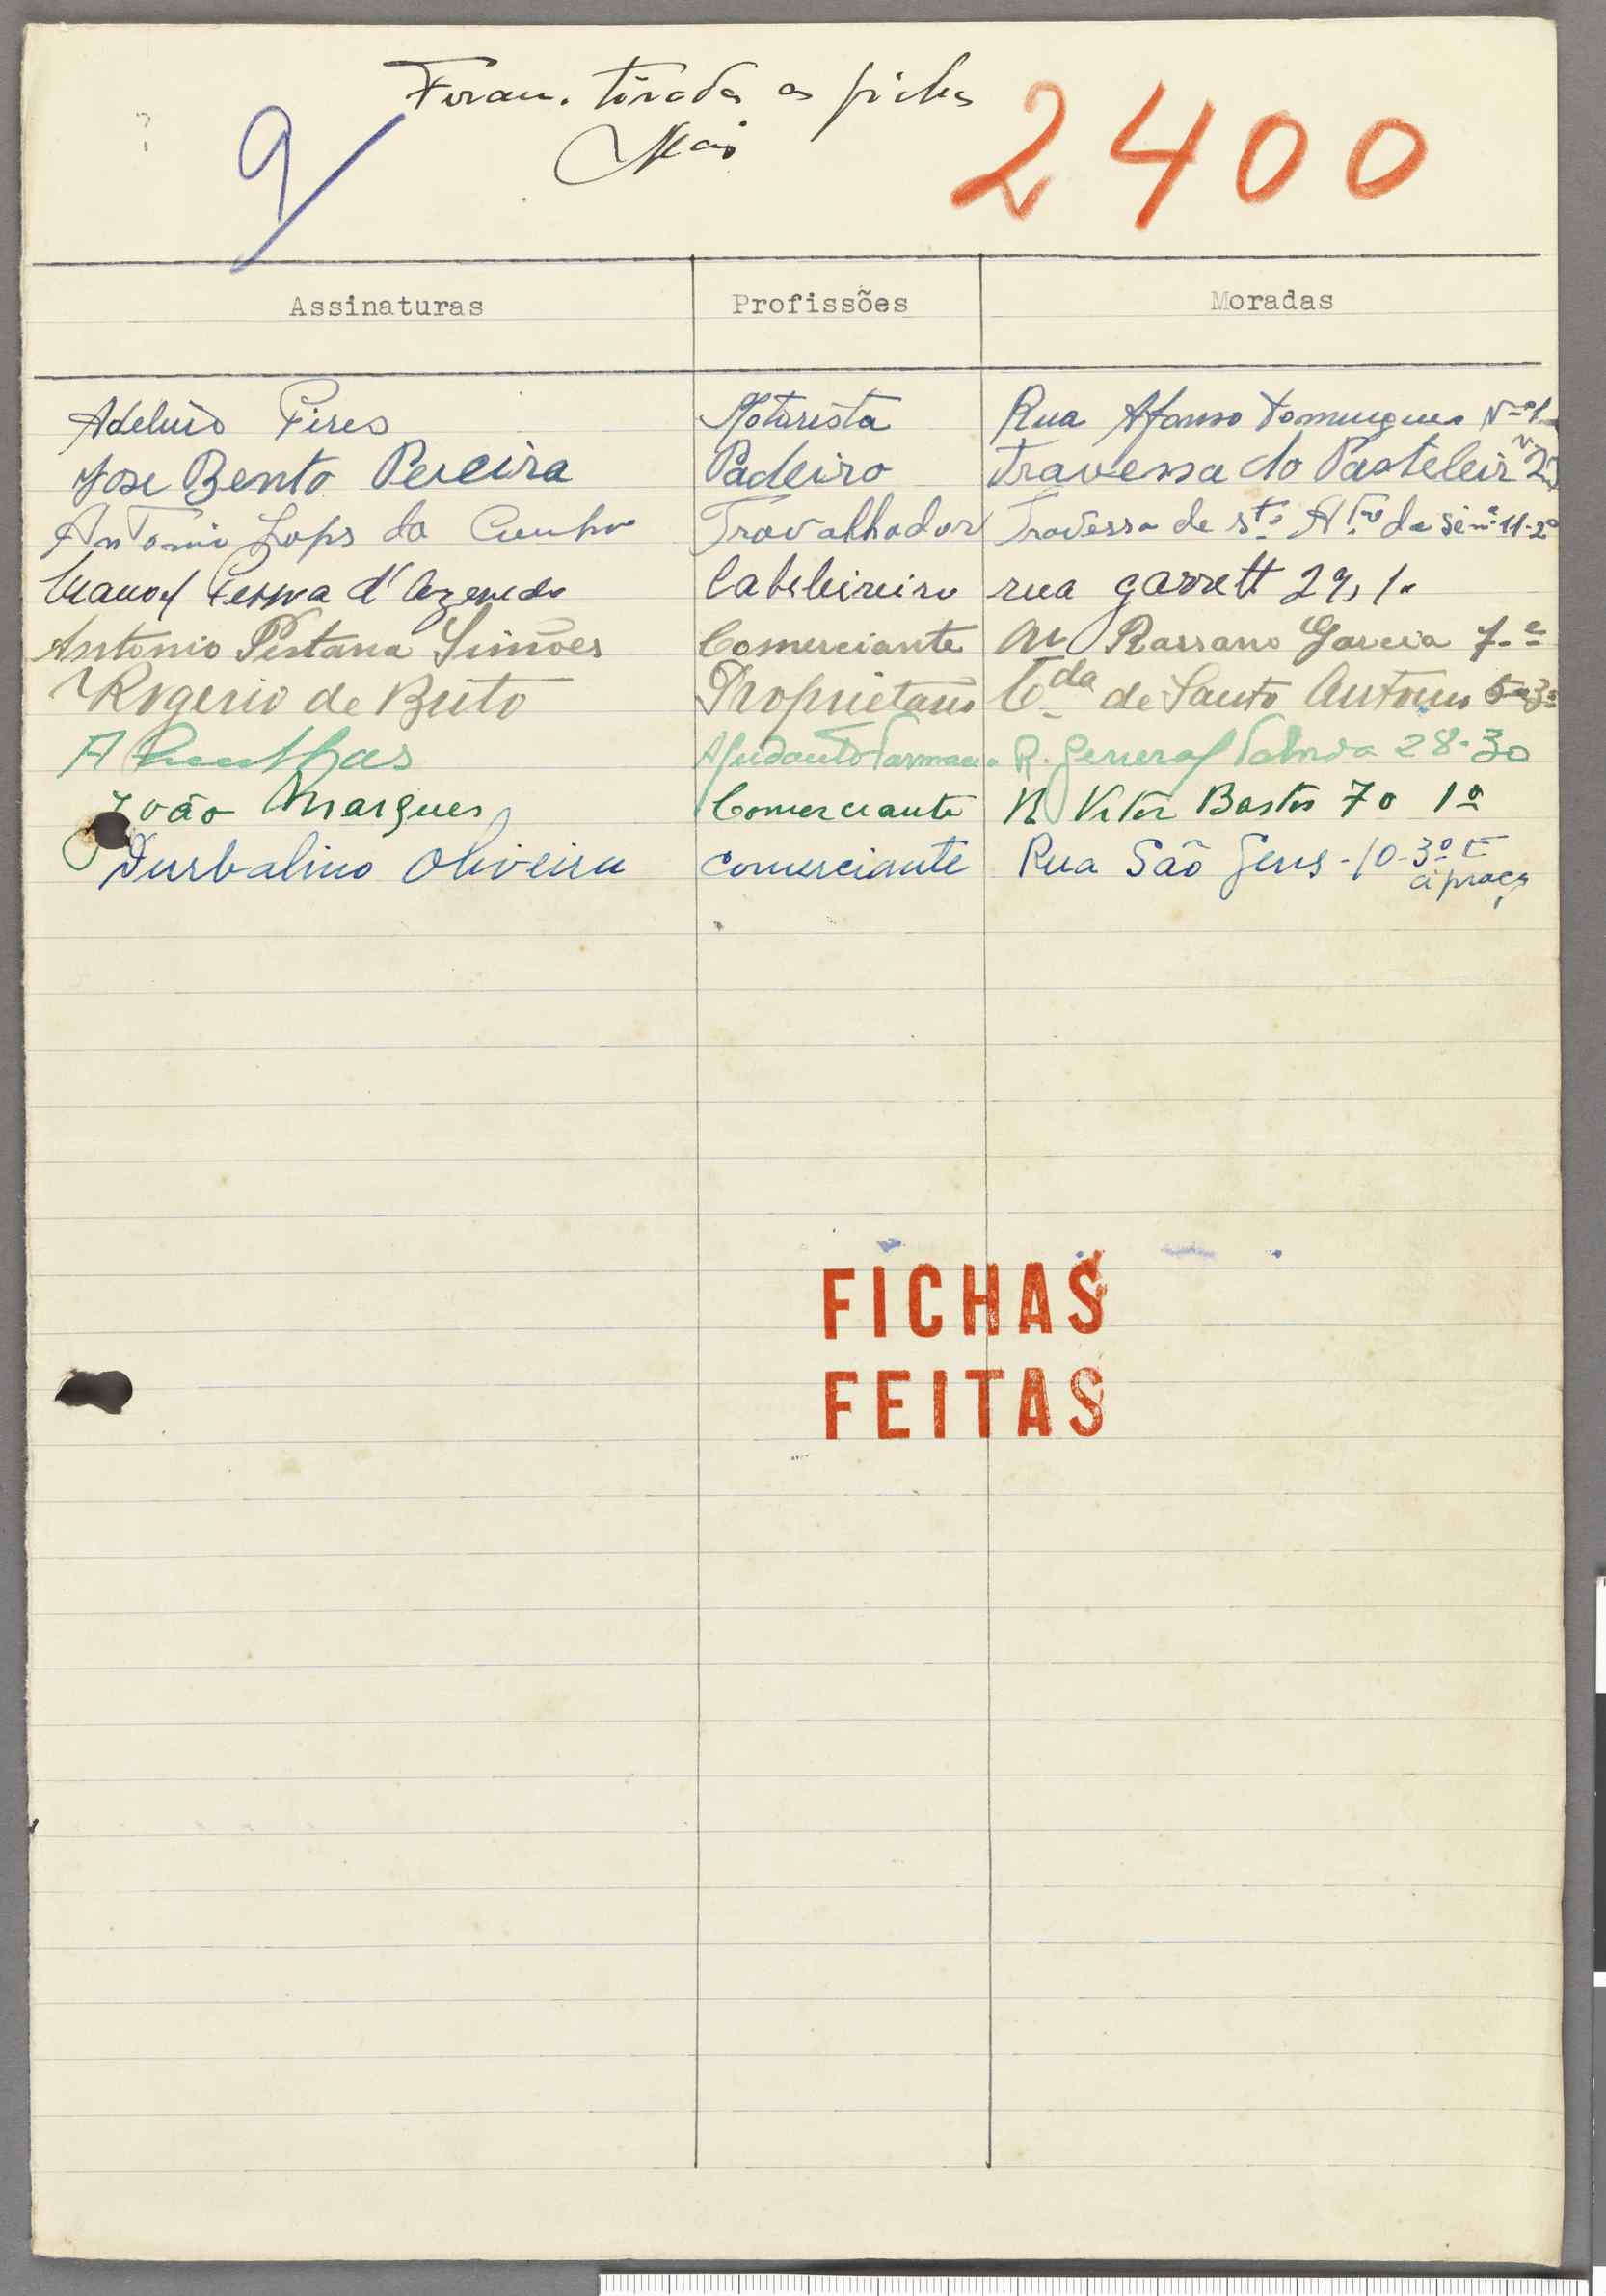 Foram tiradas as fichas
9
2400
Assinaturas Profissões Moradas
Adelino Pires Motorista Rua Afonso Domingues Nº 1
Jose Bento Pereira Padeiro Travessa do Pasteleir Nº 2
Antonio Lopes da Cunha Travalhador Travessa de Stº Antº da Sé nº 11-2º
Manoel d'Azevedo Cabeleireiro rua garrett 29, 1º
Antonio Pestana Simões Comerciante Av Rossano Garcia 7
Rogerio de Brito Proprietario Cda de Santo Antonio 3º
A Ajudante Farmacia R. General 28-30
João Marques Comerciante R Vitor Bastos 70 1º
Durbalino Oliveira Comerciante Rua São Gens-10-3º E
à praça
FICHAS
FEITAS